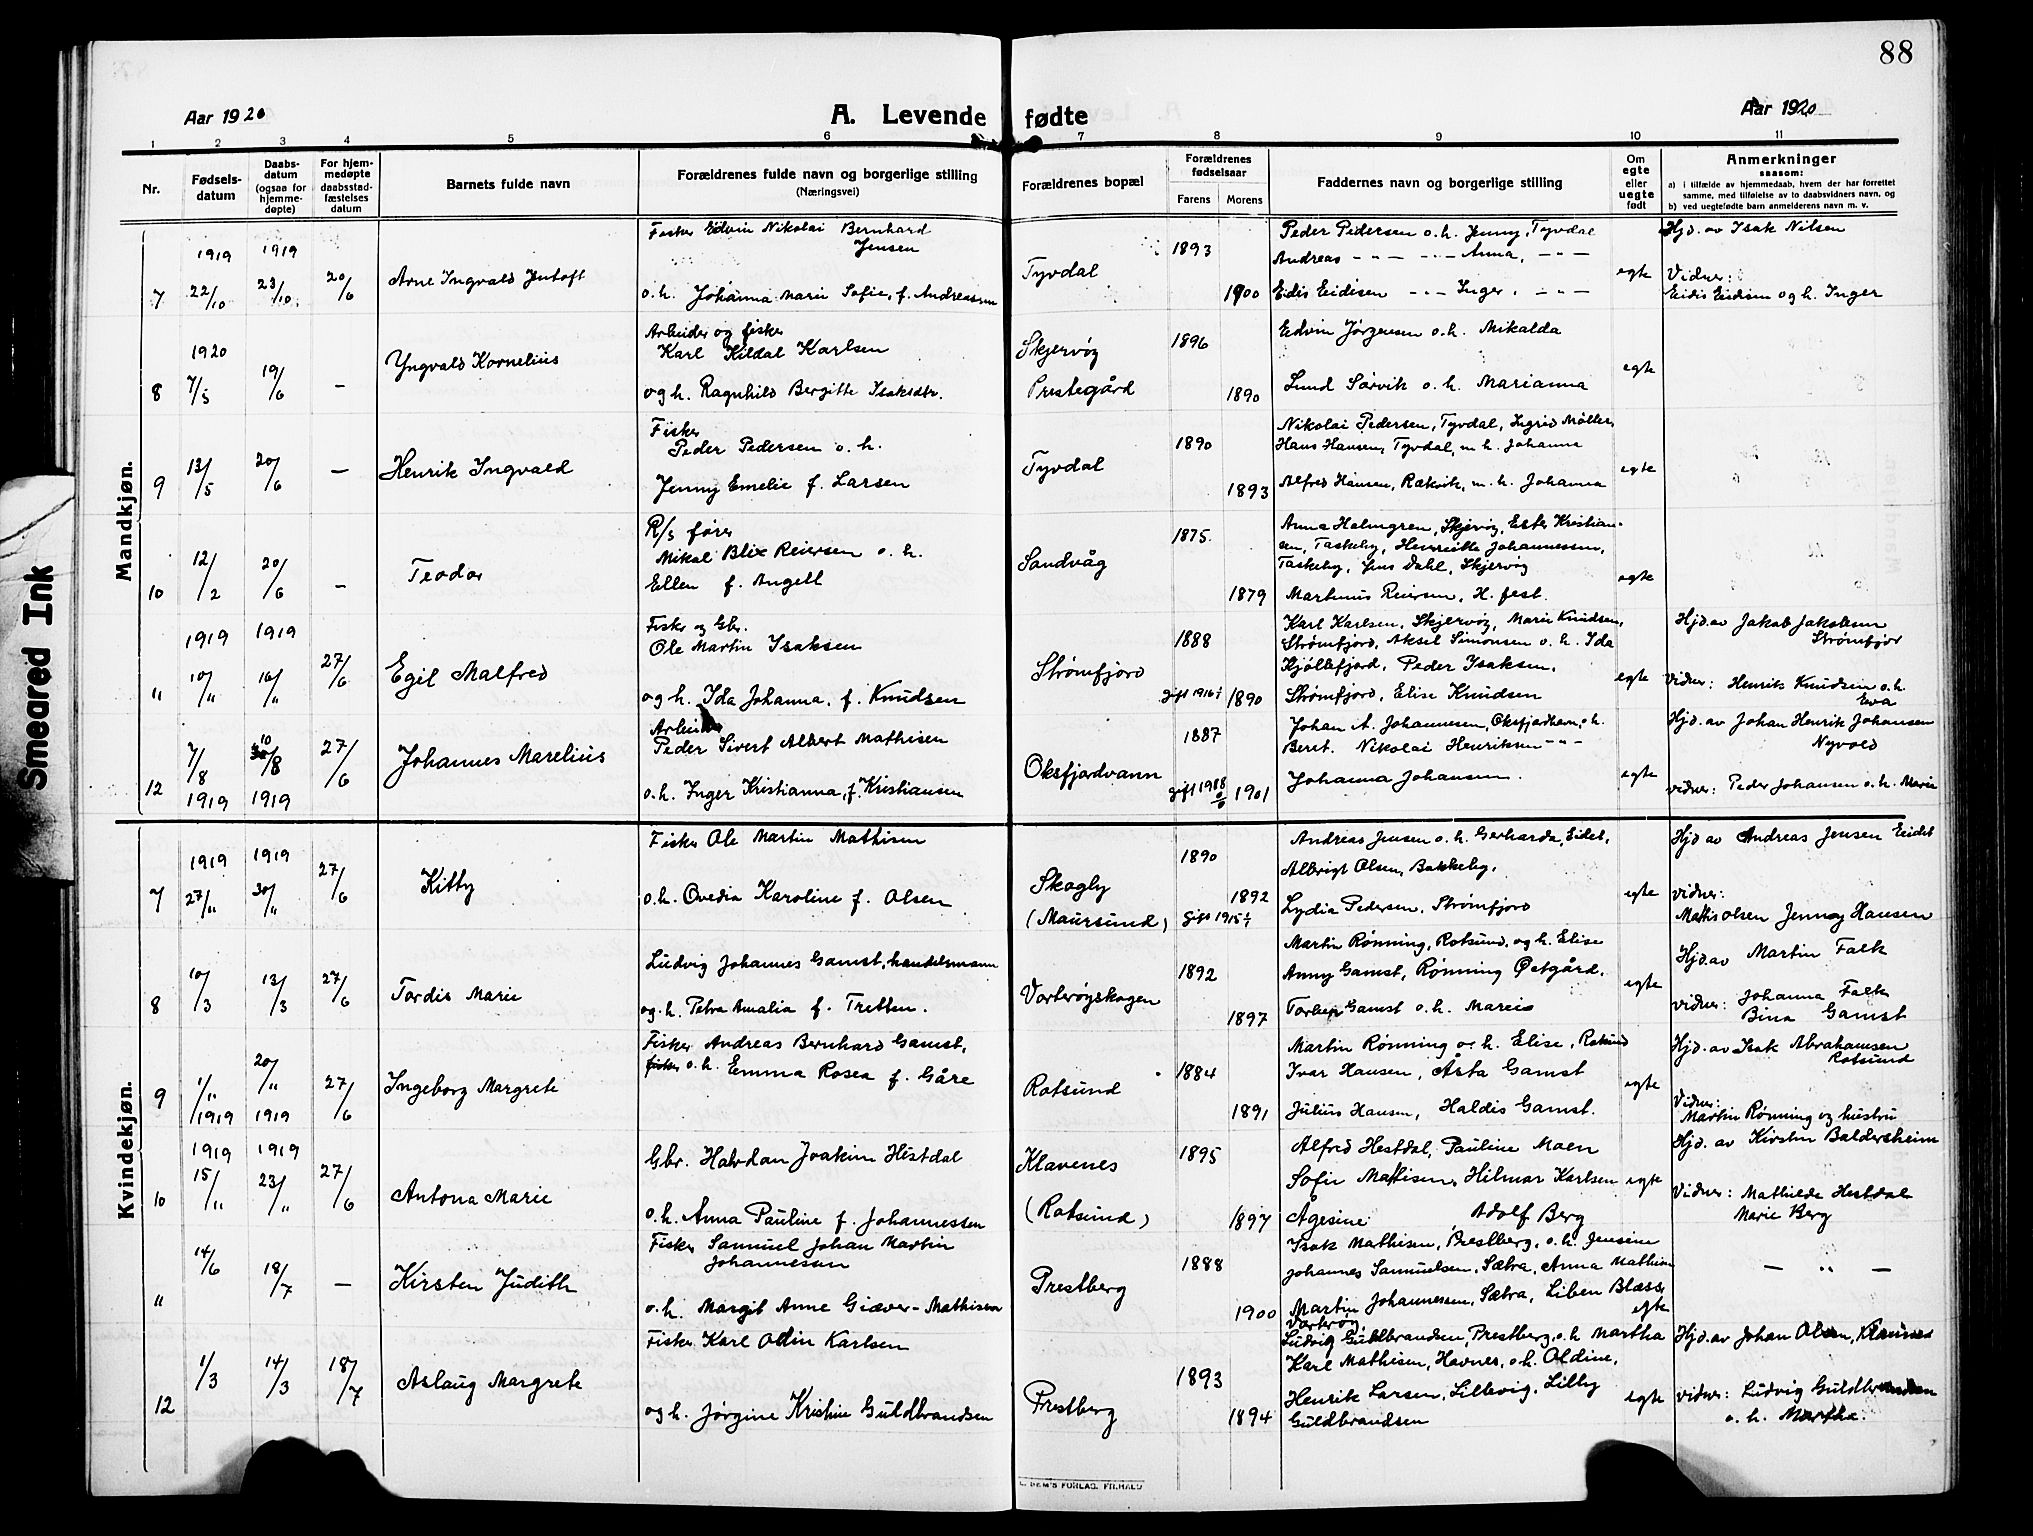 88
Aar 1920
A. Levende fødte
Aar 1920
1 2 3 4 5 6 7 8 9 10 11
Nr.
Fødselsdatum
Daabsdatum (ogsaa for hjemmedøpte)
For hjemmedøpte daabsstadfæstelses datum
Barnets fulde navn
Forældrenes fulde navn og borgerlige stilling
(Næringsvei)
Forældrenes bopæl
Forældrenes fødselsaar
Farens Morens
Faddernes navn og borgerlige stilling
Om egte eller uegte født
Anmerkninger
saasom:
a) i tilfælde av hjemmedaab, hvem der har forrettet samme, med tilføielse av to daabsvidners navn, og
b) ved uegtefødte barn anmelderens navn m. v.
Smeared Ink
Mandkjøn.
7 1919 22/10 1919 23/10 20/6 Arne Ingvald Jentoft
Fisker Edvin Nikolai Bernhard
Jensen
o.h. Johanna Marie Sofie, f. Andreassen
Tyvdal 1893 1900
Peder Pedersen o.h. Jenny, Tyvdal
Andreas -"- -"- Anna, -"-
Eidis Eidisen -"- Inger, -"-
egte
Hjd. av Isak Nilsen
Vidner:
Eidis Eidisen og h. Inger
8 1920 7/5 19/6 – Yngvald Kornelius
Arbeider og fisker
Karl Kildal Karlsen
og h. Ragnhild Bergitte Isaksdtr.
Skjervøy
Prestegård
1896 1890
Edvin Jørgensen o.h. Mikalda
Lund Sørvik o.h. Marianna
egte
9 13/5 20/6 – Henrik Ingvald
Fisker
Peder Pedersen o.h.
Jenny Emelie f. Larsen
Tyvdal 1890 1893
Nikolai Pedersen, Tyvdal, Ingrid Møller,
Hans Hansen, Tyvdal, m.h. Johanna
Alfred Hansen, Rakvik, m.h. Johanna
egte
10 12/2 20/6 – Teodor
R/s fører
Mikal Blix Reiersen o.h.
Ellen f. Angell
Sandvåg 1875. 1879
Anna Halmgren, Skjervøy, Ester Kristian-
sen, Taskeby, Henriette Johannessen,
Taskeby, Jens Dahl, Skjervøy
Marthinus Reiersen, H. fest.
egte
" 1919 10/" 1919 16/" 27/6 Egil Malfred
Fisker og Gbr.
Ole Martin Isaksen
og h. Ida Johanna, f. Knudsen
Strømfjord 1888 gift 1916 1890
Karl Karlsen, Skjervøy, Marie Knudsen,
Strømfjord, Aksel Simonsen o.h. Ida
Kjøllefjord, Peder Isaksen,
Strømfjord, Elise Knudsen
egte
Hjd. av Jakob Jakobsen
Strømfjor
Vidner: Henrik Knudsen o.h.
Eva
12 7/8 1919 10/8 1919 27/6 Johannes Marelius
Arbeider
Peder Sivert Albert Mathisen
o.h. Inger Kristianna, f. Kristiansen
Oksfjordvann 1887 1901
Johan A. Johannesen, Oksfjordhavn, o.h.
Beret. Nikolai Henriksen -"-
Johanna Johansen.
egte
Hjd. av Johan Henrik Johansen
Nyvold
Vidner: Peder Johansen o.h. Marie
Kvindekjøn.
7 1919 27/" 1919 30/" 27/6 Kitty
Fisker Ole Martin Mathisen
o.h. Ovedia Karoline f. Olsen
Skogly
(Maursund)
1890 1892
Andreas Jensen o.h. Gerharda, Eidet,
Albrigt Olsen, Bakkeby,
Lydia Pedersen, Strømfjord
egte
Hjd av Andreas Jensen Eidet
Vidner:
Mattis Olsen Jenny Hansen
8 10/3 13/3 27/6 Tordis Marie
Ludvig Johannes Gamst, handelsmann
og h. Petra Amalia f. Tretten.
Vorterøyskogen 1892 1897
Martin Rønning, Rotsund, og h. Elise
Anny Gamst, Rønning Østgård,
Torleif Gamst o.h. Mareis
egte
Hjd. av Martin Falk
Vidner: Johanna Falk
Bina Gamst
9 1/" 1919 20/" 1919 27/6 Ingeborg Margrete
Fisker Andreas Bernhard Gamst,
fisker o.h. Emma Rosea f. Gåre
Rotsund 1884 1891
Martin Rønning o.h. Elise, Rotsund
Ivar Hansen, Åsta Gamst
Julius Hansen, Haldis Gamst.
egte
Hjd. av Isak Abrahamsen
Rotsund
Vidner:
Martin Rønning og hustru
10 1919 15/" 1919 23/" 27/6 Antona Marie
Gbr. Halvdan Joakim Hestdal
o.h. Anna Pauline f. Johannessen
Klavenes
(Rotsund)
1895 1897
Alfred Hestdal, Pauline Moen
Sofie Mathisen, Hilmar Karlsen
Ågesine Adolf Berg
egte
Hjd. av Kirsten Baldersheim
Vidner: Mathilde Hestdal
Marie Berg
" 14/6 18/7 – Kirsten Judith
Fisker Samuel Johan Martin
Johannessen
o.h. Margit Anne Giæver-Mathisen
Prestberg 1888 1900
Isak Mathisen, Prestberg, o.h. Jensine
Johannes Samuelsen, Sætra, Anna Mathisen
Martin Johannessen, Sætra, Liben Blæss,
Vorterøy
egte
– " –
12 1/3 14/3 18/7 Aslaug Margrete
Fisker Karl Odin Karlsen
og h. Jørgine Kristine Guldbrandsen
Prestberg 1893 1894
Ludvig Guldbrandsen, Prestberg, o.h Martha
Karl Mathisen, Havnes, o.h. Oldine,
Henrik Larsen, Lillevig, Lilly
Guldbrandsen
egte
Hjd. av Johan Olsen,
Vidner: Ludvig Guldbrandsen
o.h. Martha.